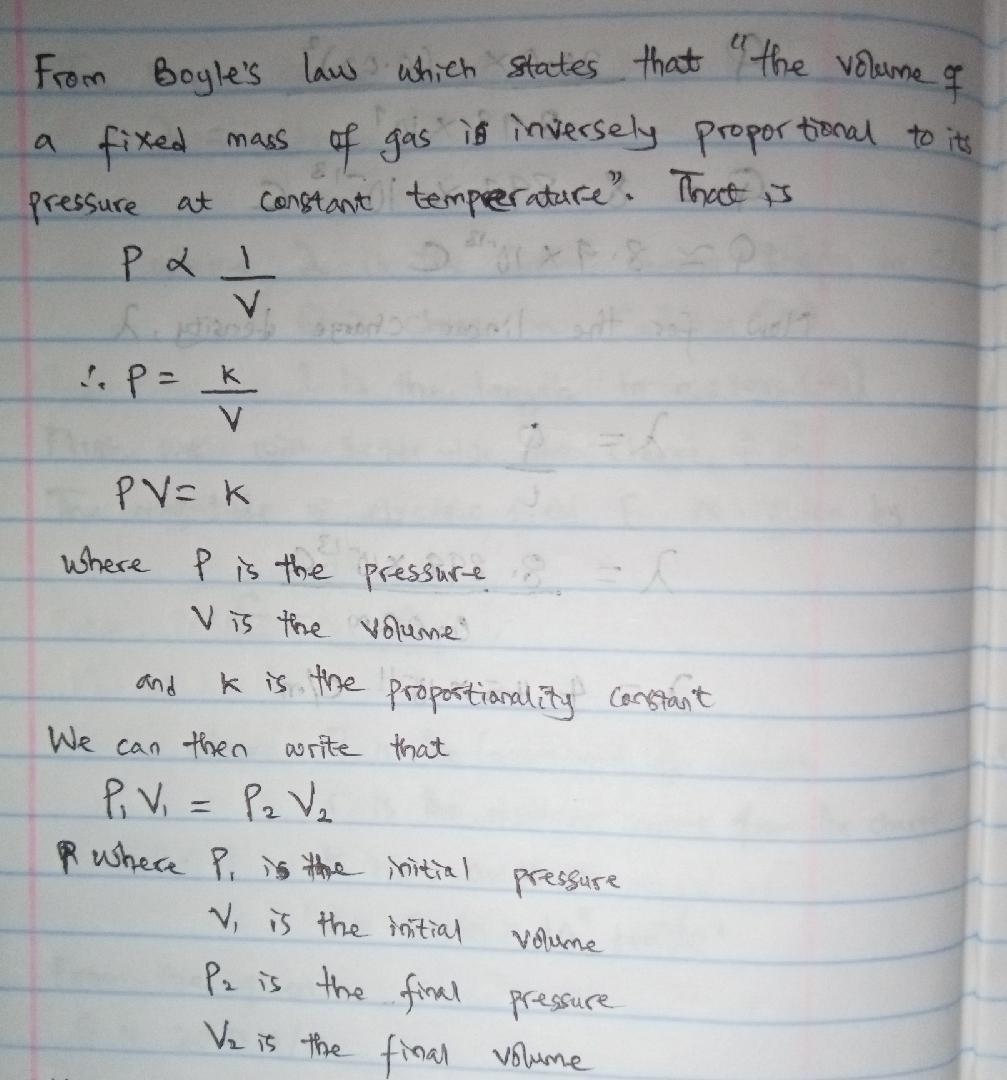 From Boyle's law which states that "the volume of
a fixed mass of gas is inversely proportional to its
pressure at constant temperature". That is
P α 1
V
∴ P = K
V
PV = K
where P is the pressure
V is the volume
and K is the proportionality constant
We can then write that
P₁V₁ = P₂V₂
where P₁ is the initial pressure
V₁ is the initial volume
P₂ is the final pressure
V₂ is the final volume